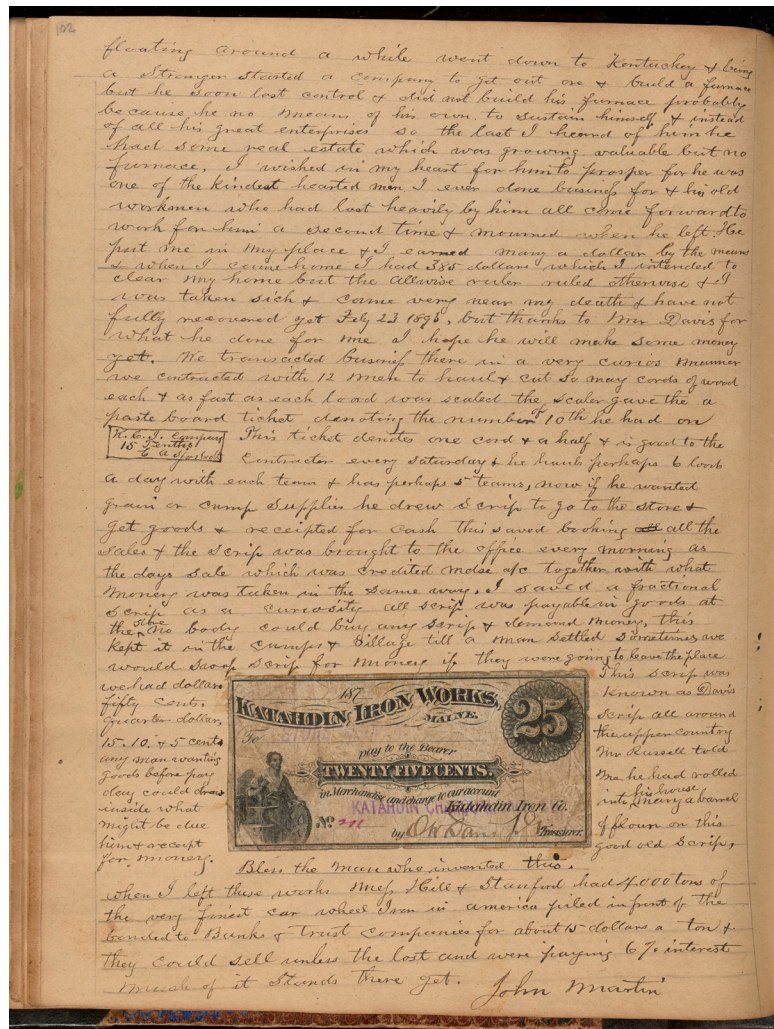 102
floating around a while went down to Kentuckey & being
a Stranger started a company to get out ore & build a furnace
but he soon lost control & did not build his furnace probably
because he no means of his own to sustain himself & instead
of all his great enterprises so the last I heard of him he
had some real estate which was growing valuable but no
furnace, I wished in my heart for him to prosper for he was
one of the kindest hearted men I ever done business for & his old
workmen who had lost heavily by him all come forward to
work for him a second time & mourned when he left. He
put me in my place & I earned many a dollar by the means
& when I came home I had 385 dollars which I intended to
clear my home but the Allwise ruler ruled otherwise & I
was taken sick & came very near my death & have not
fully recovered yet Feby 23 1895, but thanks to Mr Davis for
what he done for me I hope he will make some money
yet. We transacted business there in a very curios manner
we contracted with 12 men to haul & cut so may cords of wood
each & as fast as each load was scaled the scaler gave the a
paste board ticket denoting the number of 10th he had on
K. C. I. Company
15 Tenths
This ticket denotes one cord & a half & is good to the
Contractor every Saturday & he hauls perhaps 6 loads
a day with each team & has perhaps 5 teams, now if he wanted
grain or camp supplies he drew scrip to go to the store &
get goods & receipted for cash this saved booking all the
sales & the scrip was brought to the office every morning as
the days sale which was credited mdse a/c together with what
money was taken in the same way, I saved a fractional
scrip as a curiosity all scrip was payable in goods at
the store no body could buy any scrip & demand money, this
kept it in the camps & village till a man settled sometimes we
would swop scrip for money if they were going to leave the place
we had dollars
fifty cents.
quarter dollar,
15. 10. & 5 cents
any man wanting
goods before pay
day could draw
inside what
might be due
him & receipt
for money.
187
KATAHDIN IRON WORKS,
MAINE.
To
pay to the Bearer
TWENTY FIVE CENTS.
in Merchandise and charge to our account
25
KATAHDIN
Katahdin Iron Co.
No
by O W Davis Jr Treasurer.
This scrip was
known as Davis
Scrip all around
the upper country
Mr Russell told
me he had rolled
into his house many a barrel
of flour on this
good old scrip,
Bless the man who invented this.
when I left these works Mess Hill & Stanford had 4000 tons of
the very finest car wheel Iron in america piled in front of the
bonded to Banks & Trust companies for about 15 dollars a ton &
they could sell unless the lost and were paying 6 % interest
much of it stands there yet. John Martin